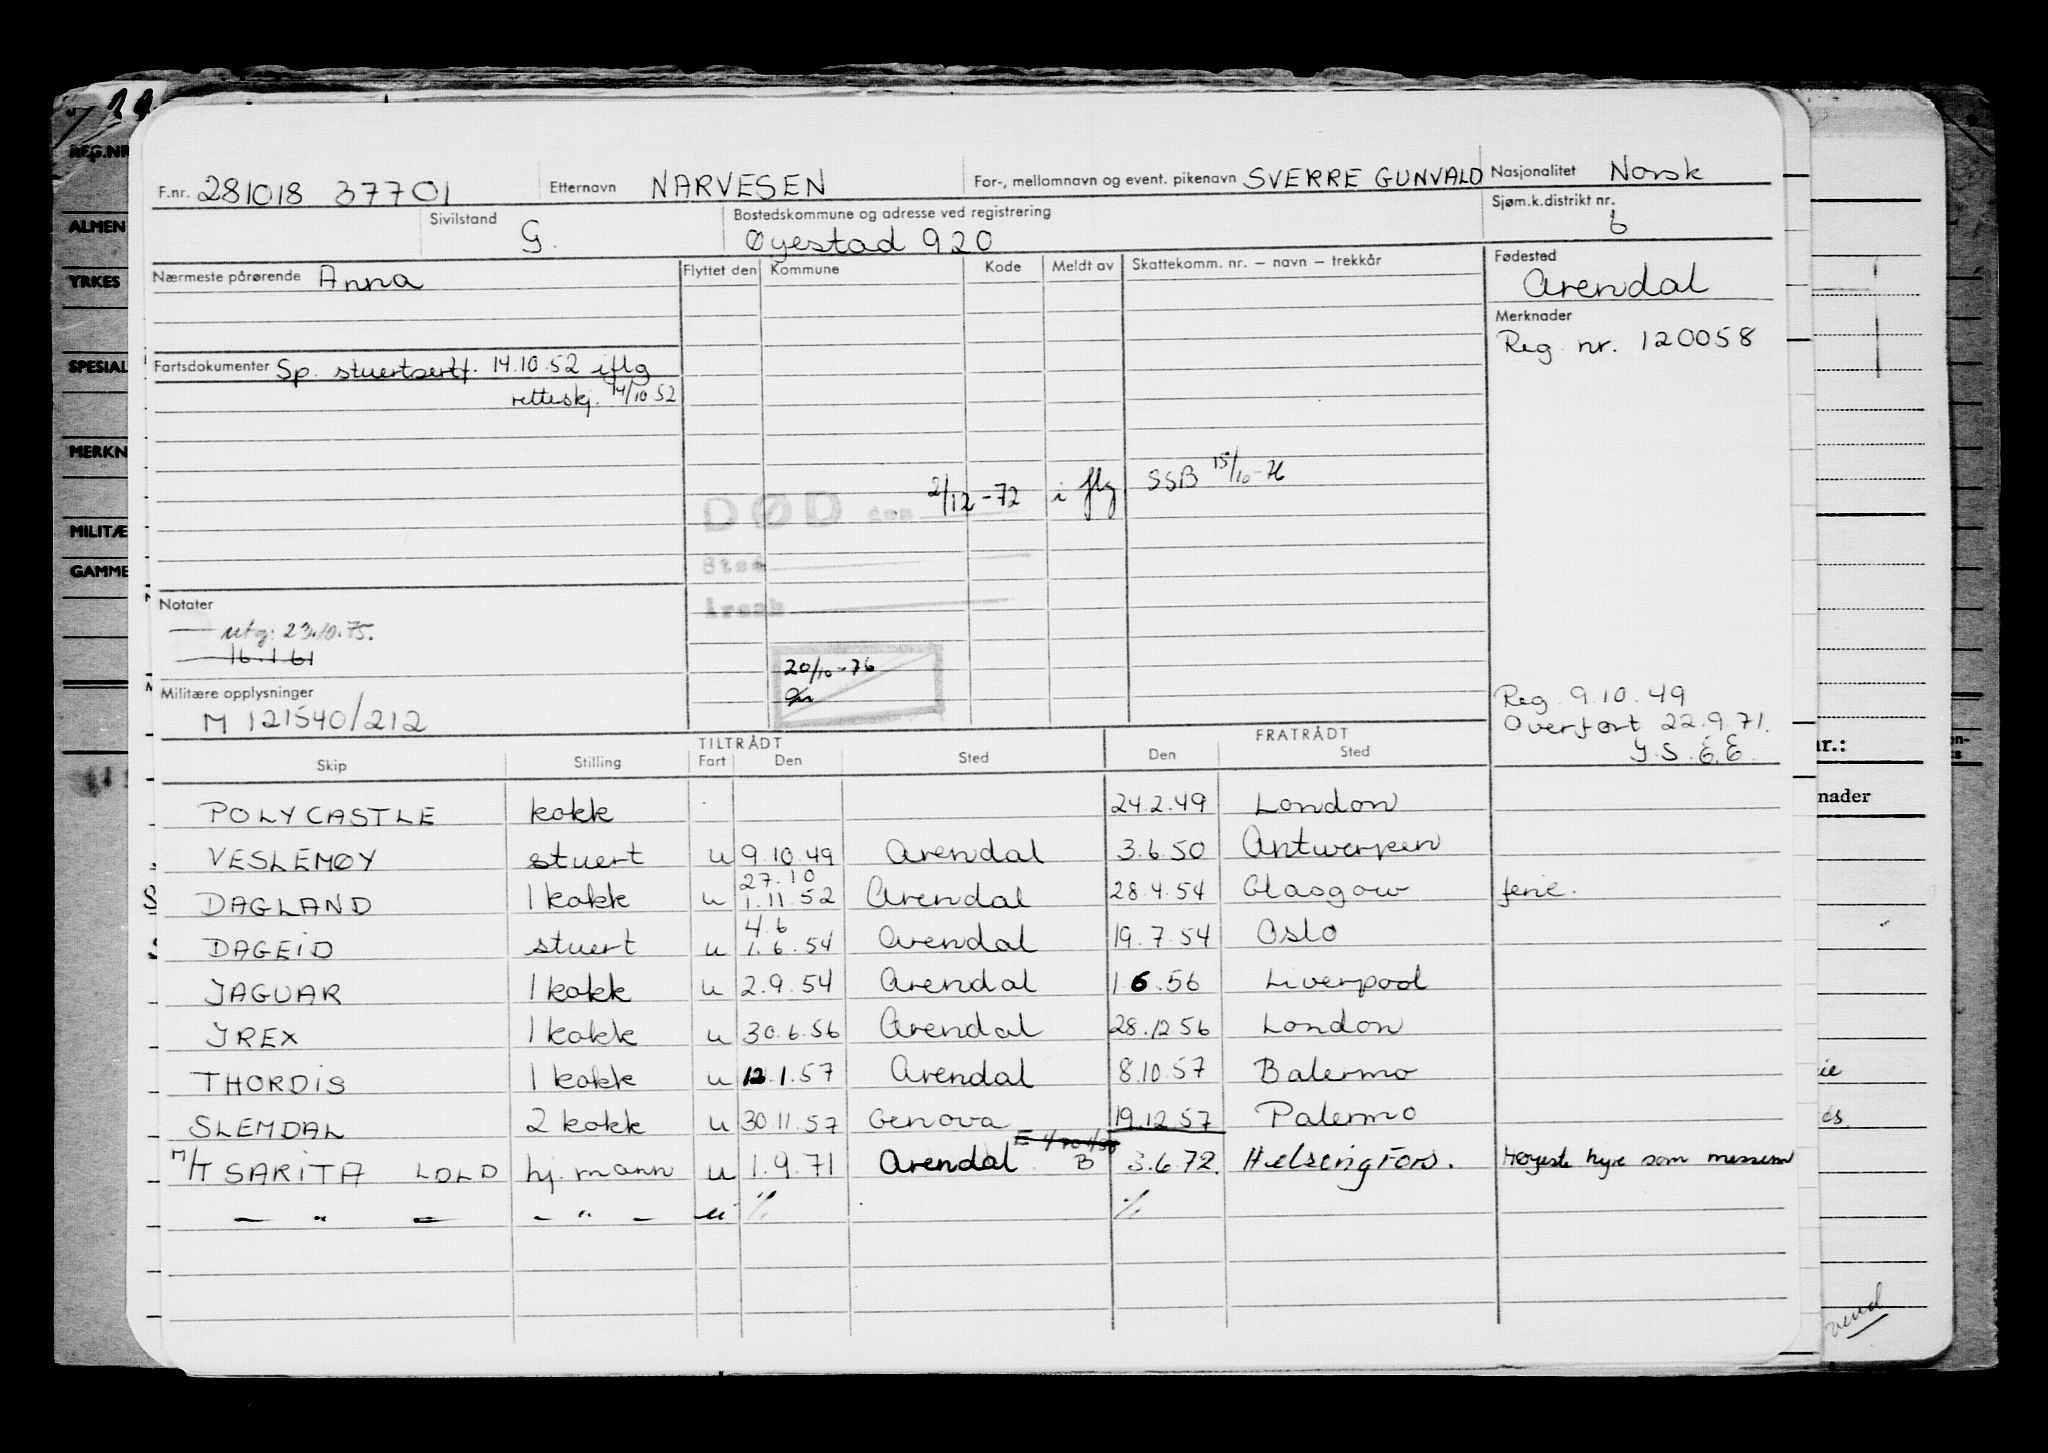 REG.NR
ALMEN
YRKES
SPESIAL
MERKN
MILITÆ
GAMME
F.nr. 281018 37701 Etternavn NARVESEN For-, mellomnavn og event. pikenavn SVERRE GUNVALD Nasjonalitet Norsk
Sivilstand G. Bostedskommune og adresse ved registrering Øyestad 920 Sjøm.k.distrikt nr. 6
Nærmeste pårørende Anna Flyttet den Kommune Kode Meldt av Skattekomm. nr. – navn – trekkår Fødested Arendal
Merknader
Reg. nr. 120058
Fartsdokumenter Sp. stuertsertf. 14.10.52 iflg
retteskj. 14/10 52
DØD den 2/12-72 i flg SSB 15/10-76
Sted
årsak
Notater
utg: 23.10.75.
16.1.61
20/10-76
Militære opplysninger
M 121540/212
Reg. 9.10.49
Overført 22.9.71.
TILTRÅDT FRATRÅDT
Skip Stilling Fart Den Sted Den Sted
POLYCASTLE kokk 24.2.49 London
VESLEMØY stuert u 9.10.49 Arendal 3.6.50 Antwerpen
27.10
DAGLAND 1 kokk u 1.11.52 Arendal 28.4.54 Glasgow ferie.
4.6
DAGEID stuert u 1.6.54 Arendal 19.7.54 Oslo
JAGUAR 1 kokk u 2.9.54 Arendal 1.6.56 Liverpool
JREX 1 kokk u 30.6.56 Arendal 28.12.56 London
THORDIS 1 kokk u 12.1.57 Arendal 8.10.57 Balermo
SLEMDAL 2 kokk u 30.11.57 Genova 19.12.57 Palermo
M/T SARITA LDLD hj. mann u 1.9.71 Arendal B 3.6.72. Helsingfors. Høyeste hyre som messem
— " — — " — u % %
nr.:
nader
vend